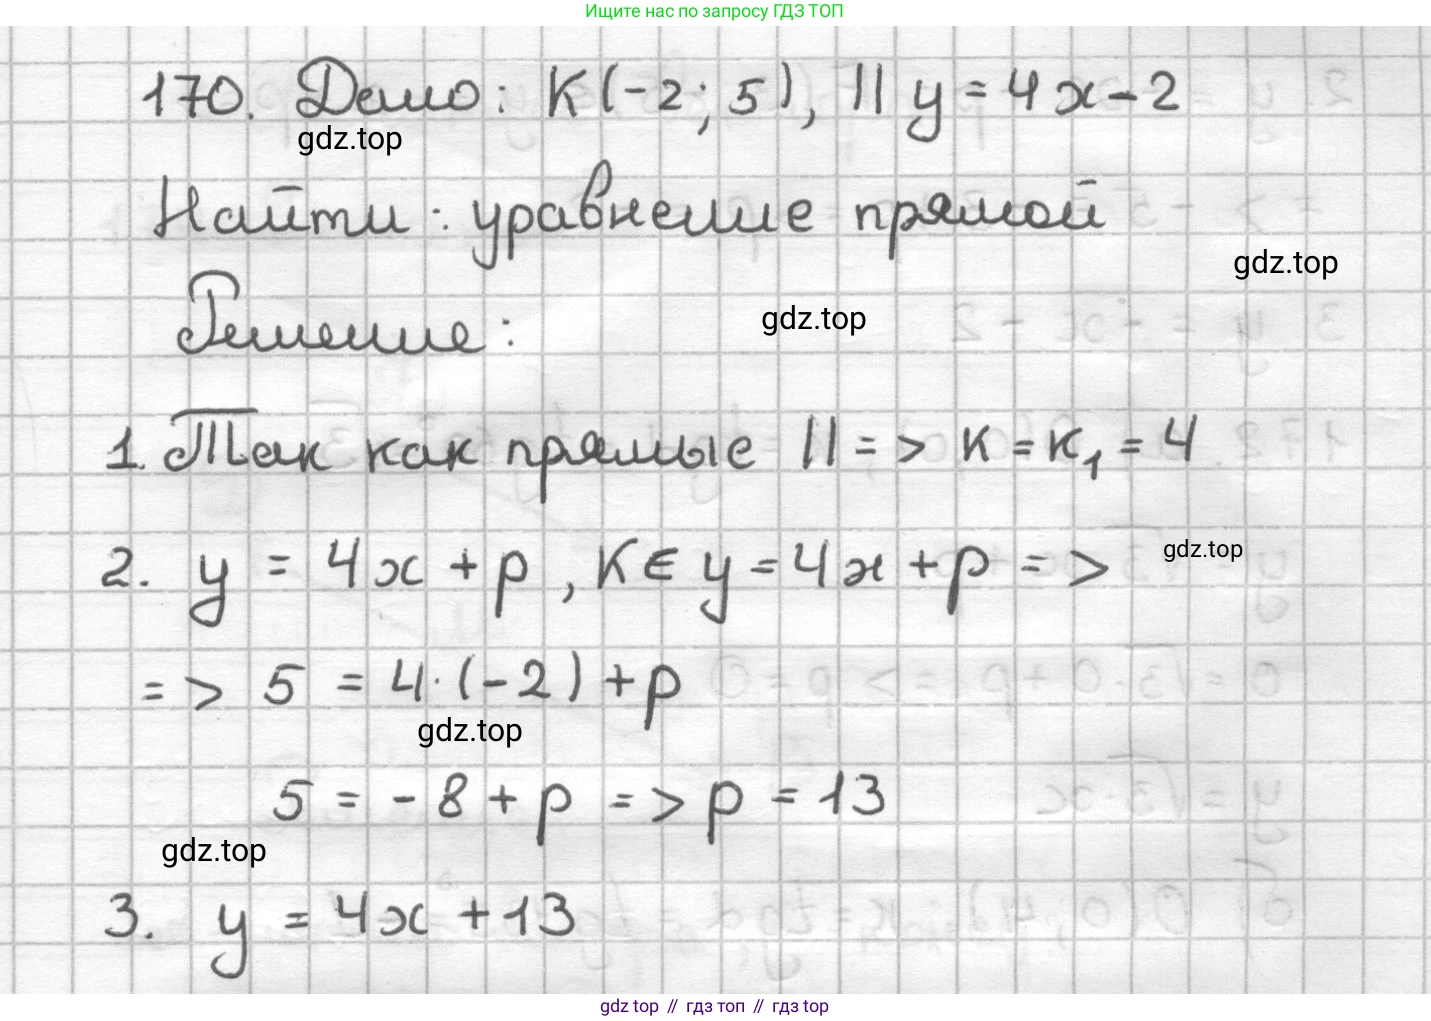 Ищите нас по запросу ГДЗ ТОП
170. Дано: K(-2; 5), || y = 4x - 2
gdz.top
Найти: уравнение прямой
gdz.top
Решение:
gdz.top
1. Так как прямые || => к = к₁ = 4
2. y = 4x + p, K ∈ y = 4x + p =>
gdz.top
=> 5 = 4·(-2) + p
gdz.top
5 = -8 + p => p = 13
gdz.top
3. y = 4x + 13
gdz top // гдз топ // гдз top